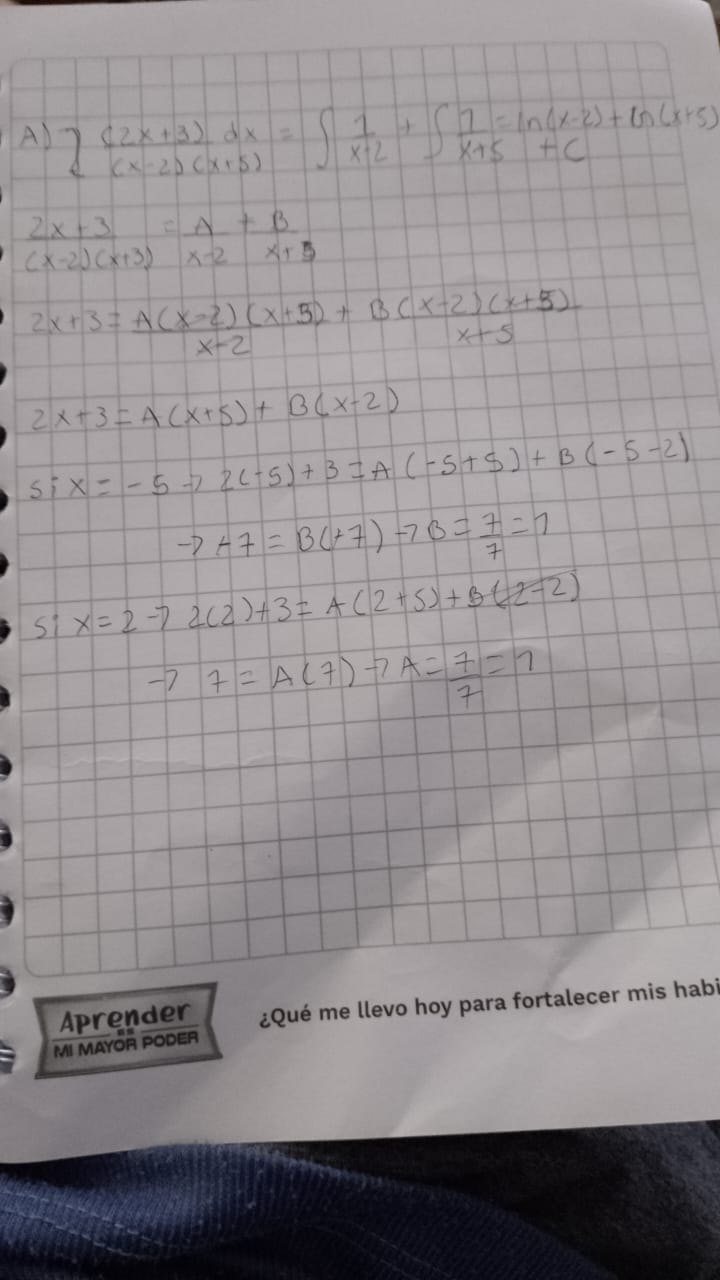 A) ∫ (2x+3) dx / (x-2)(x+5) = ∫ 1/x-2 + ∫ 1/x+5 = ln(x-2) + ln(x+5) + C
2x+3 / (x-2)(x+3) = A / x-2 + B / x+5
2x+3 = A(x-2)(x+5) / x-2 + B(x-2)(x+5) / x+5
2x+3 = A(x+5) + B(x-2)
si x = -5 → 2(-5)+3 = A(-5+5) + B(-5-2)
→ +7 = B(+7) → B = 7/7 = 1
si x = 2 → 2(2)+3 = A(2+5) + B(2-2)
→ 7 = A(7) → A = 7/7 = 1
Aprender
ES
MI MAYOR PODER
¿Qué me llevo hoy para fortalecer mis habi